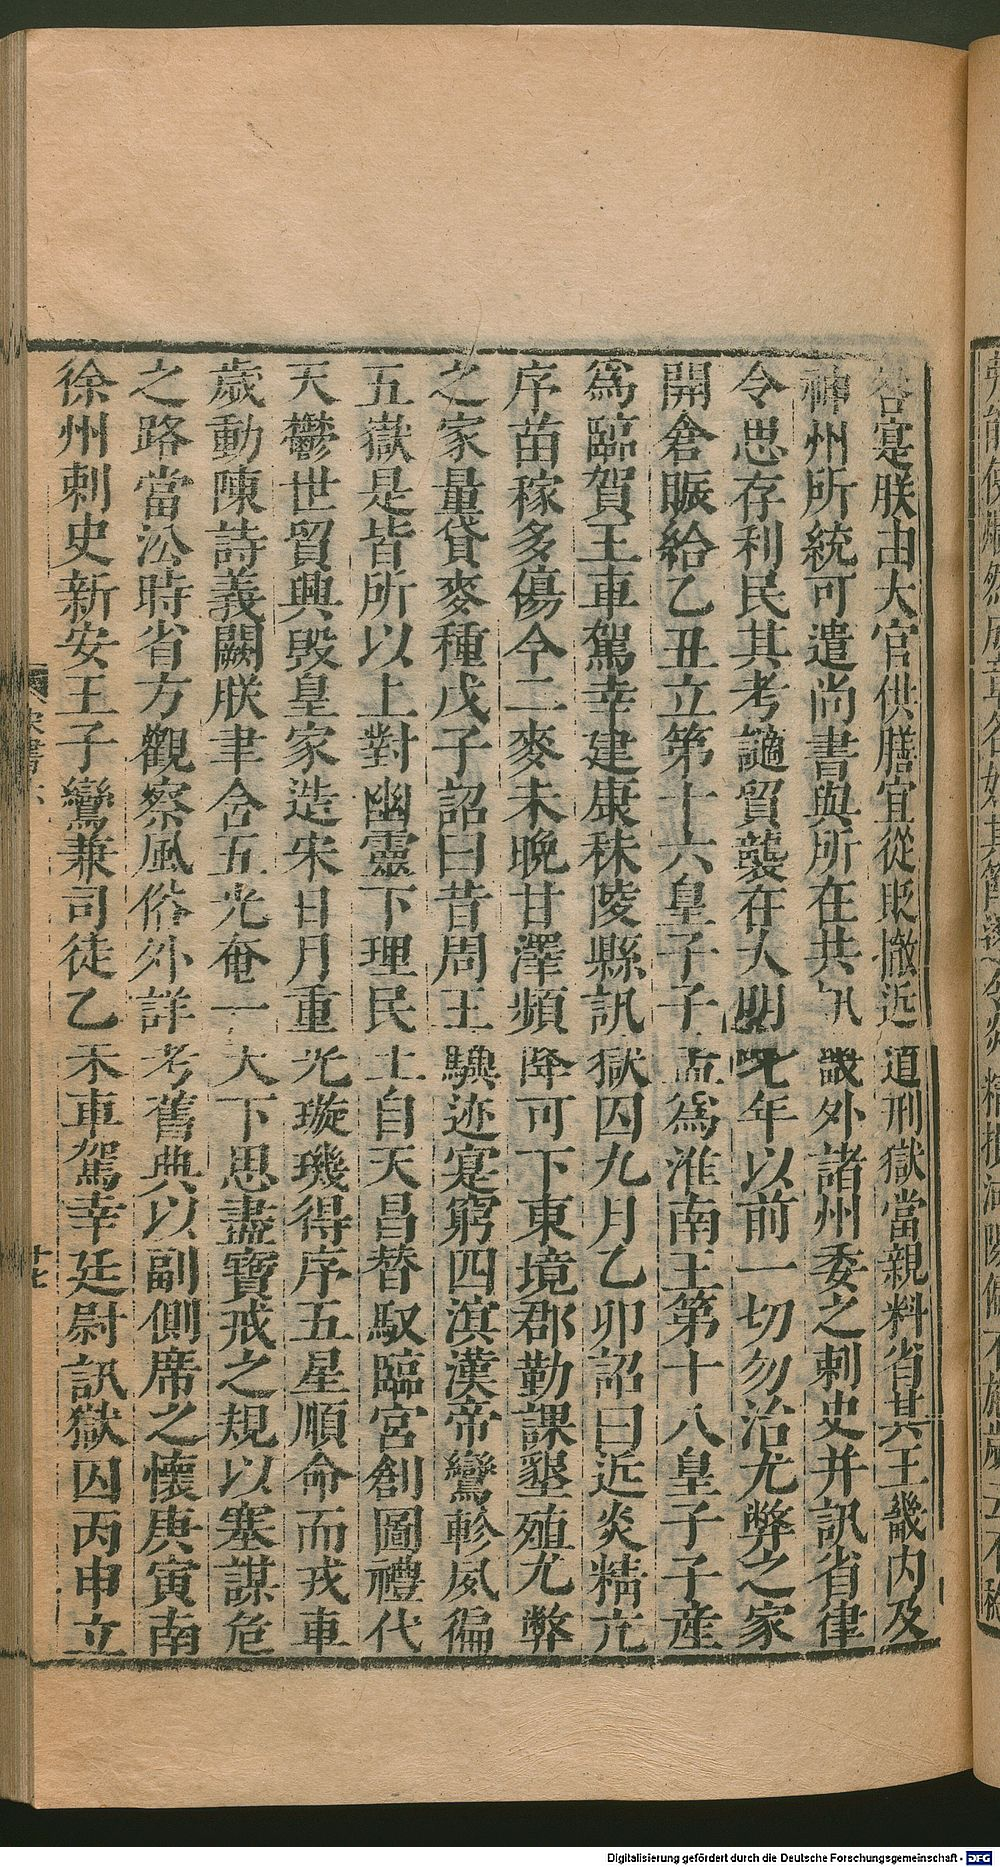 咎寔朕由大官供膳宜從貶撤近道刑獄當親料省其王畿內及
神州所統可遣尚書與所在共訊畿外諸州委之刺史并訊省律
令思存利民其考讁貿襲在大明七年以前一切勿治尤弊之家
開倉賑給乙丑立第十六皇子子孟爲淮南王第十八皇子子產
爲臨賀王車駕幸建康秣陵縣訊獄囚九月乙卯詔曰近炎精亢
序苗稼多傷今二麥未晚甘澤頻降可下東境郡勤課墾殖尤弊
之家量貸麥種戊子詔曰昔周王驥迹寔窮四溟漢帝鸞軫夙徧
五嶽是皆所以上對幽靈下理民土自天昌替馭臨宮創圖禮代
天鬱世貿興毀皇家造宋日月重光璇璣得序五星順命而戎車
歲動陳詩義闕朕聿含五光奄一天下思盡寶戒之規以塞謀危
之路當沿時省方觀察風俗外詳考舊典以副側席之懷庚寅南
徐州刺史新安王子鸞兼司徒乙未車駕幸廷尉訊獄囚丙申立
宋書六
廿七
Digitalisierung gefördert durch die Deutsche Forschungsgemeinschaft - DFG